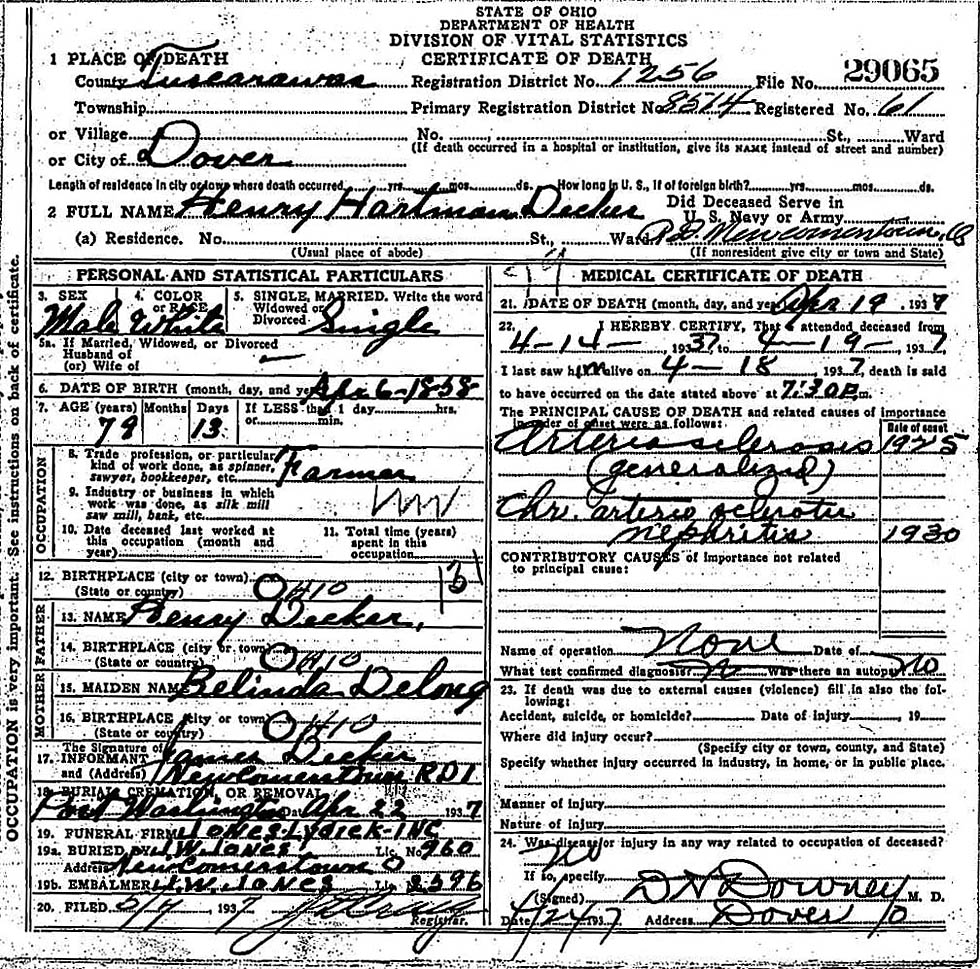 STATE OF OHIO
DEPARTMENT OF HEALTH
DIVISION OF VITAL STATISTICS
CERTIFICATE OF DEATH
1 PLACE OF DEATH
County Tuscarawas Registration District No. 1256 File No. 29065
Township Primary Registration District No. 8514 Registered No. 61
or Village No. St., Ward
(If death occurred in a hospital or institution, give its NAME instead of street and number)
or City of Dover
Length of residence in city or town where death occurred yrs. mos. ds. How long in U. S., if of foreign birth? yrs. mos. ds.
2 FULL NAME Henry Hartman Decker Did Deceased Serve in U. S. Navy or Army
(a) Residence. No. St., Ward Newcomerstown, O
(Usual place of abode) (If nonresident give city or town and State)
PERSONAL AND STATISTICAL PARTICULARS
3. SEX Male 4. COLOR or RACE White 5. SINGLE, MARRIED, Write the word Widowed or Divorced Single
5a. If Married, Widowed, or Divorced
Husband of
(or) Wife of
6. DATE OF BIRTH (month, day, and year) Apr 6-1858
7. AGE (years) 79 Months Days 13 If LESS than 1 day hrs. or min.
OCCUPATION
8. Trade, profession, or particular kind of work done, as spinner, sawyer, bookkeeper, etc. Farmer
9. Industry or business in which work was done, as silk mill saw mill, bank, etc.
10. Date deceased last worked at this occupation (month and year)
11. Total time (years) spent in this occupation
12. BIRTHPLACE (city or town)
(State or country) OHIO
FATHER
13. NAME Henry Decker,
14. BIRTHPLACE (city or town)
(State or country) OHIO
MOTHER
15. MAIDEN NAME Belinda DeLong
16. BIRTHPLACE (city or town)
(State or country) OHIO
17. The Signature of INFORMANT James Decker
and (Address) Newcomerstown RD1
18. BURIAL, CREMATION, OR REMOVAL
Port Washington Date Apr 22 1937
19. FUNERAL FIRM JONES-LYDICK-INC
19a. BURIED BY J.W. JONES Lic. No. 960
Address Newcomerstown O
19b. EMBALMER J.W. JONES Lic. 2596
20. FILED 5/7, 1937 Registrar.
MEDICAL CERTIFICATE OF DEATH
21. DATE OF DEATH (month, day, and year) Apr 19 1937
22. I HEREBY CERTIFY, That I attended deceased from
4-14- 1937, to 4-19- 1937
I last saw him alive on 4-18 1937, death is said
to have occurred on the date stated above at 7:30 P.m.
The PRINCIPAL CAUSE OF DEATH and related causes of importance
in order of onset were as follows: Date of onset
Arteriosclerosis 1925
(generalized)
Chr. arterio sclerotic
nephritis 1930
CONTRIBUTORY CAUSES of importance not related
to principal cause:
Name of operation None Date of
What test confirmed diagnosis? Was there an autopsy? No
23. If death was due to external causes (violence) fill in also the following:
Accident, suicide, or homicide? Date of injury , 19
Where did injury occur?
(Specify city or town, county, and State)
Specify whether injury occurred in industry, in home, or in public place.
Manner of injury
Nature of injury
24. Was disease or injury in any way related to occupation of deceased?
No
If so, specify
(Signed) Downey M. D.
Date 4/24 1937 Address Dover O
OCCUPATION is very important. See instructions on back of certificate.